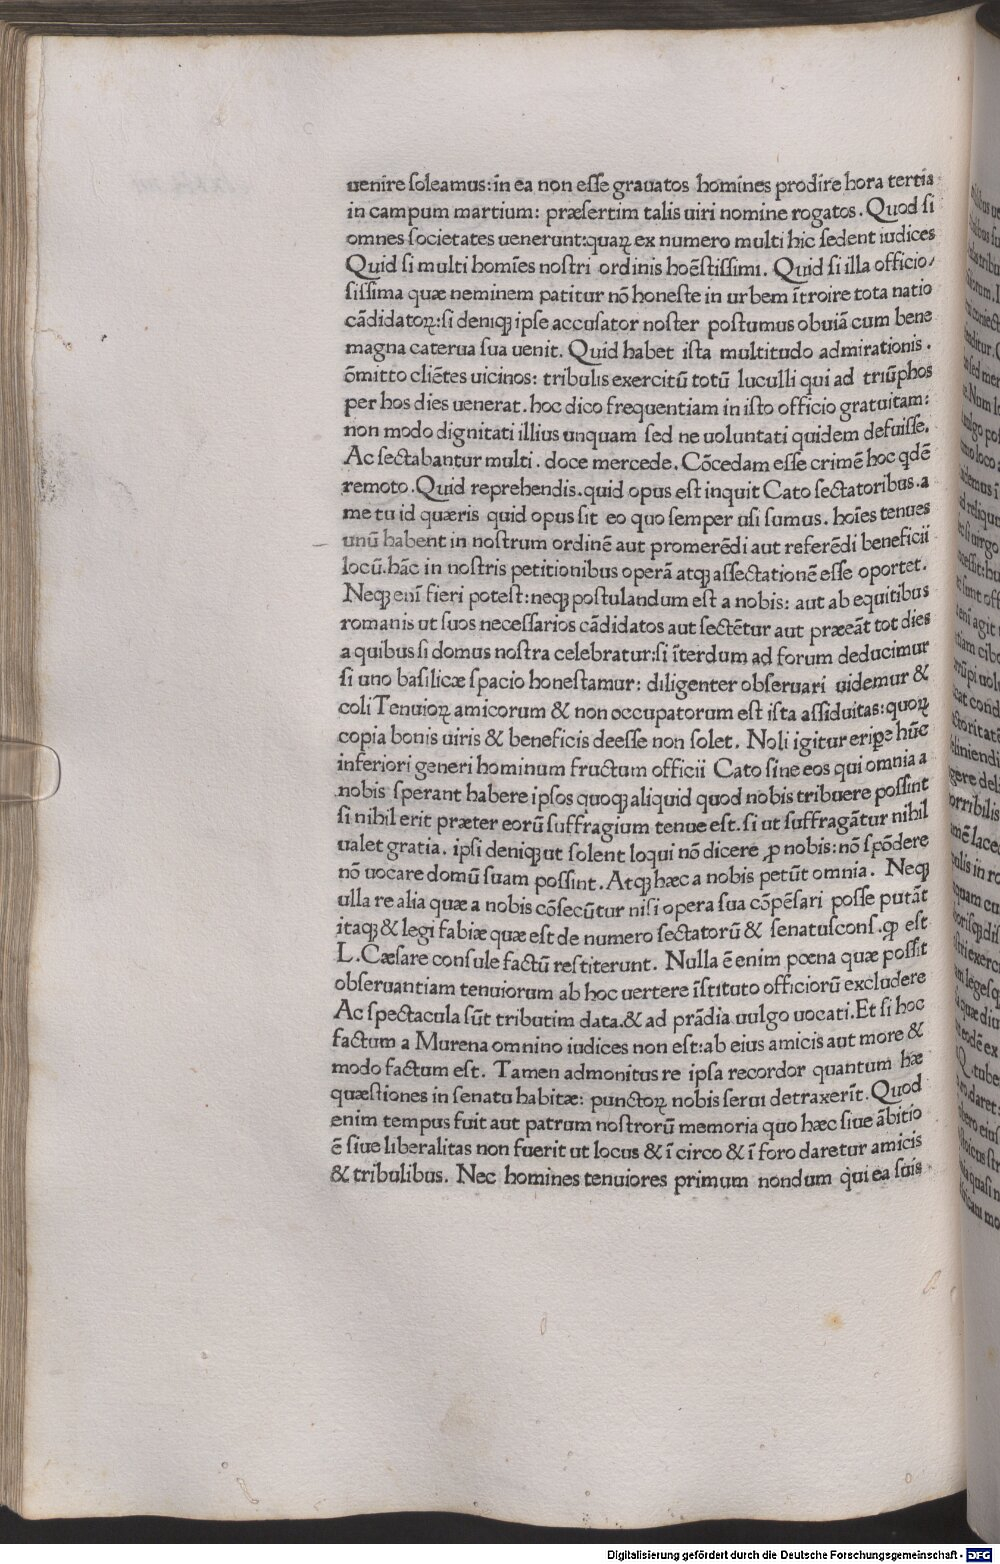 uenire soleamus: in ea non esse grauatos homines prodire hora tertia
in campum martium: præsertim talis uiri nomine rogatos. Quod si
omnes societates uenerunt: quaꝝ ex numero multi hic sedent iudices
Quid si multi homīes nostri ordinis hoēstissimi. Quid si illa officio/
sissima quæ neminem patitur nō honeste in urbem ītroire tota natio
cādidatoꝝ: si deniqꝫ ipse accusator noster postumus obuiā cum bene
magna caterua sua uenit. Quid habet ista multitudo admirationis.
ōmitto cliētes uicinos: tribulis exercitū totū luculli qui ad triūphos
per hos dies uenerat. hoc dico frequentiam in isto officio gratuitam:
non modo dignitati illius unquam sed ne uoluntati quidem defuisse.
Ac sectabantur multi. doce mercede. Cōcedam esse crimē hoc qdē
remoto. Quid reprehendis. quid opus est inquit Cato sectatoribus. a
me tu id quæris quid opus sit eo quo semper usi sumus. hoīes tenues
unū habent in nostrum ordinē aut promerēdi aut referēdi beneficii
locū. hāc in nostris petitionibus operā atqꝫ assectationē esse oportet.
Neqꝫ enī fieri potest: neqꝫ postulandum est a nobis: aut ab equitibus
romanis ut suos necessarios cādidatos aut sectētur aut præeāt tot dies
a quibus si domus nostra celebratur: si īterdum ad forum deducimur
si uno basilicæ spacio honestamur: diligenter obseruari uidemur &
coli Tenuioꝝ amicorum & non occupatorum est ista assiduitas: quoꝝ
copia bonis uiris & beneficis deesse non solet. Noli igitur eripe hūc
inferiori generi hominum fructum officii Cato sine eos qui omnia a
nobis sperant habere ipsos quoqꝫ aliquid quod nobis tribuere possint
si nihil erit præter eorū suffragium tenue est. si ut suffragātur nihil
ualet gratia. ipsi deniqꝫ ut solent loqui nō dicere ꝓ nobis: nō spōdere
nō uocare domū suam possint. Atqꝫ hæc a nobis petūt omnia. Neqꝫ
ulla re alia quæ a nobis cōsecūtur nisi opera sua cōpēsari posse putāt
itaqꝫ & legi fabiæ quæ est de numero sectatorū & senatuscons. qꝓ est
L. Cæsare consule factū restiterunt. Nulla ē enim pœna quæ possit
obseruantiam tenuiorum ab hoc uertere īstituto officiorū excludere
Ac spectacula sūt tributim data. & ad prādia uulgo uocati. Et si hoc
factum a Murena omnino iudices non est: ab eius amicis aut more &
modo factum est. Tamen admonitus re ipsa recordor quantum hæ
quæstiones in senatu habitæ: punctoꝝ nobis serui detraxerīt. Quod
enim tempus fuit aut patrum nostrorū memoria quo hæc siue ābitio
ē siue liberalitas non fuerit ut locus & ī circo & ī foro daretur amicis
& tribulibus. Nec homines tenuiores primum nondum qui ea suis
Digitalisierung gefördert durch die Deutsche Forschungsgemeinschaft - DFG